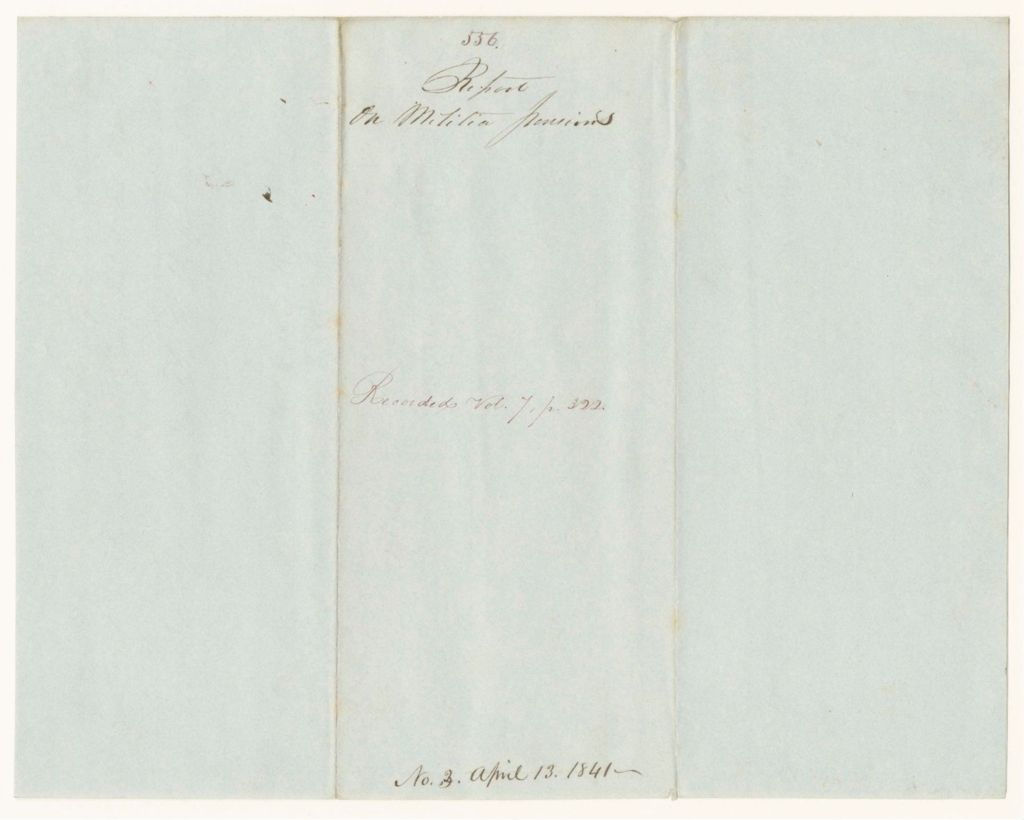 556.
Report
On Militia pensions
Recorded Vol. 7, p. 322.
No. 3. April 13. 1841